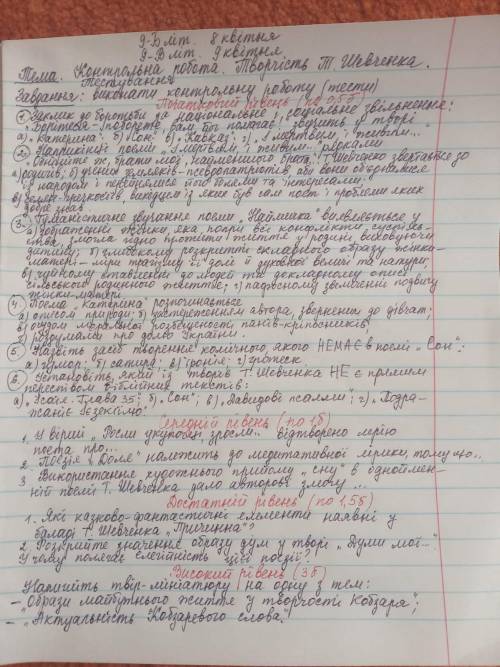 9-Б м/т. 8 квітня
9-В м/т. 9 квітня
Тема. Контрольна робота. Творчість Т. Шевченка.
Тестування
Завдання: виконати контрольну роботу (тести)
Початковий рівень (по 0,5б)
1. Заклик до боротьби за національне і соціальне звільнення:
"Борітеся – поборете, вам Бог помагає!" звучить у творі
а) "Катерина"; б) "Сон"; в) "Кавказ"; г) "І мертвим, і живим..."
2. Наприкінці поеми "І мертвим, і живим..." рядками
"Обніміте ж, брати мої, найменшого брата" Т. Шевченко звертається до
а) родичів; б) учених земляків-псевдопатріотів, аби вони об'єдналися
з народом і перейнялися його болями та інтересами;
в) селян-кріпаків, вихідцем із яких був сам поет і проблеми яких
добре знав
3. Гуманістичне звучання поеми "Наймичка" виявляється у
а) зображенні жінки, яка, попри всі конфлікти суспіль-
ства, змогла гідно прожити життя у родині, виховуючи
дитину; б) глибокому розкритті складного образу жінки-
матері – міри трагізму її долі й духовної величі та натури;
в) чуйному ставленні до людей та докладному описі
сільського родинного життя; г) пафосному звеличенні подвигу
жінки-матері
4. Поема "Катерина" розпочинається
а) описом природи; б) застереженням автора, зверненим до дівчат;
в) осудом моральної розбещеності панів-кріпосників;
г) роздумами про долю України.
5. Назвіть засіб творення комічного, якого НЕМАЄ в поемі "Сон":
а) гумор; б) сатира; в) іронія; г) гротеск
6. Установіть, який із творів Т. Шевченка НЕ є прямим
переспівом біблійних текстів:
а) "Ісаія. Глава 35"; б) "Сон"; в) "Давидові псалми"; г) "Подра-
жаніє Ієзекіїлю"
Середній рівень (по 1б)
1. У вірші "Росли укупочці, зросли..." відтворено мрію
поета про...
2. Поезія "Доля" належить до медитативної лірики, тому що..
3. Використання художнього прийому "сну" в одноймен-
ній поемі Т. Шевченка дало авторові змогу ...
Достатній рівень (по 1,5б)
1. Які казково-фантастичні елементи наявні у
баладі Т. Шевченка "Причинна"?
2. Розкрийте значення образу дум у творі "Думи мої..."
У чому полягає елегійність цієї поезії?
Високий рівень (3б)
Напишіть твір-мініатюру на одну з тем:
– "Образи майбутнього життя у творчості Кобзаря";
– "Актуальність Кобзаревого слова".